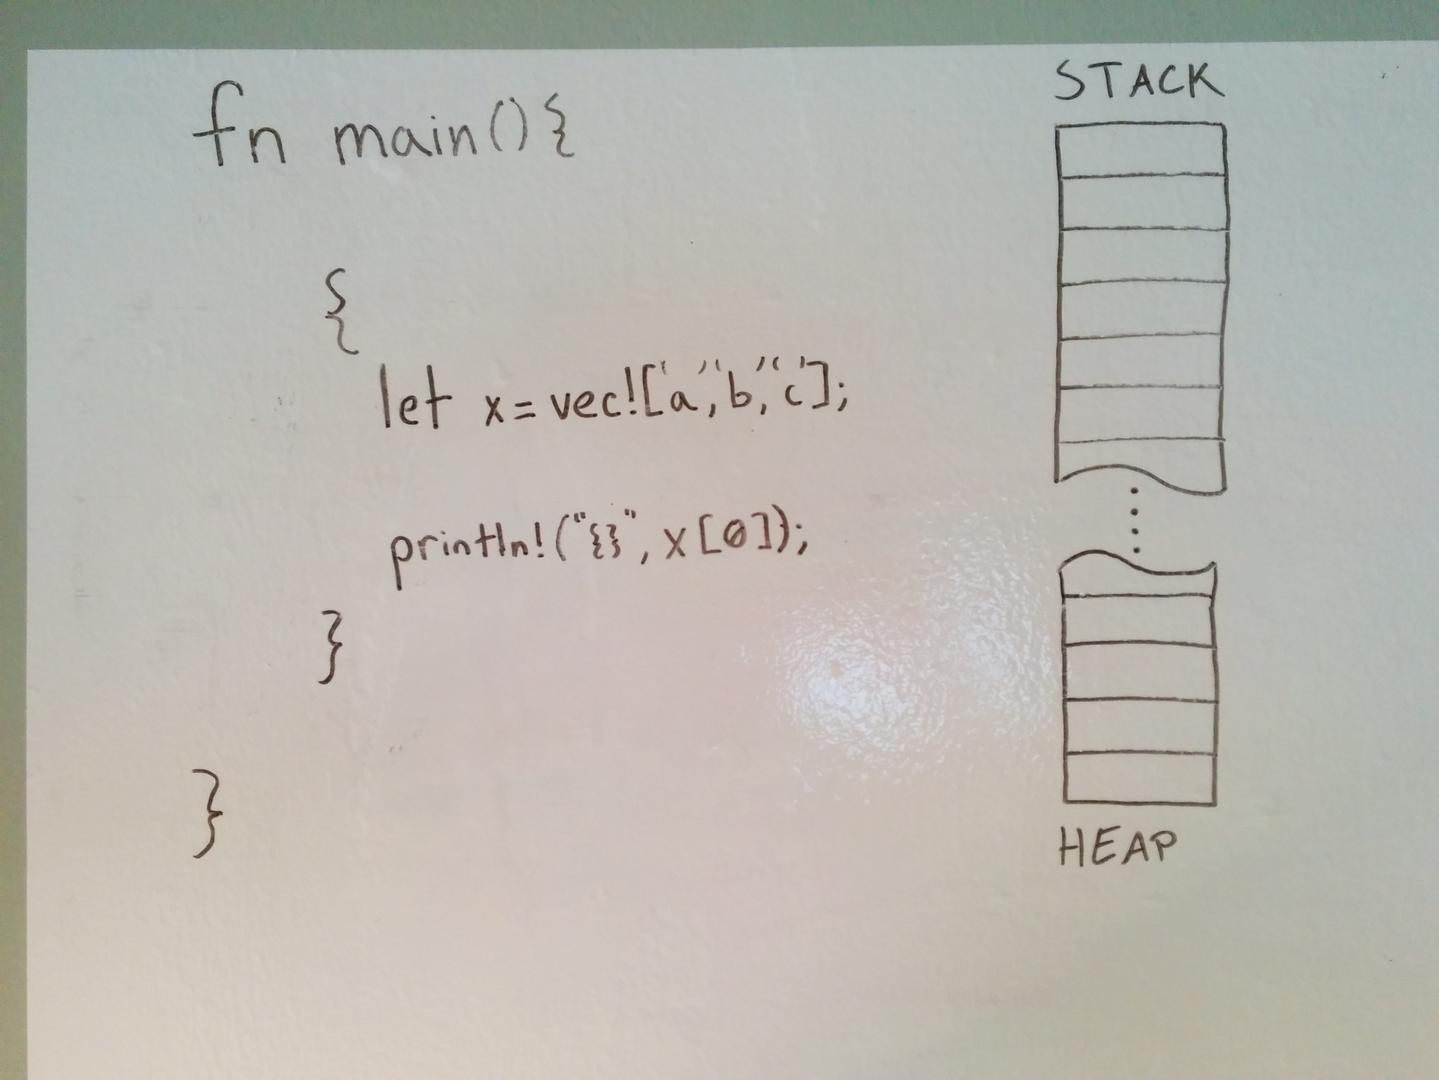 fn main(){
{
let x = vec!['a','b','c'];
println!("{}", x[0]);
}
}
STACK
HEAP